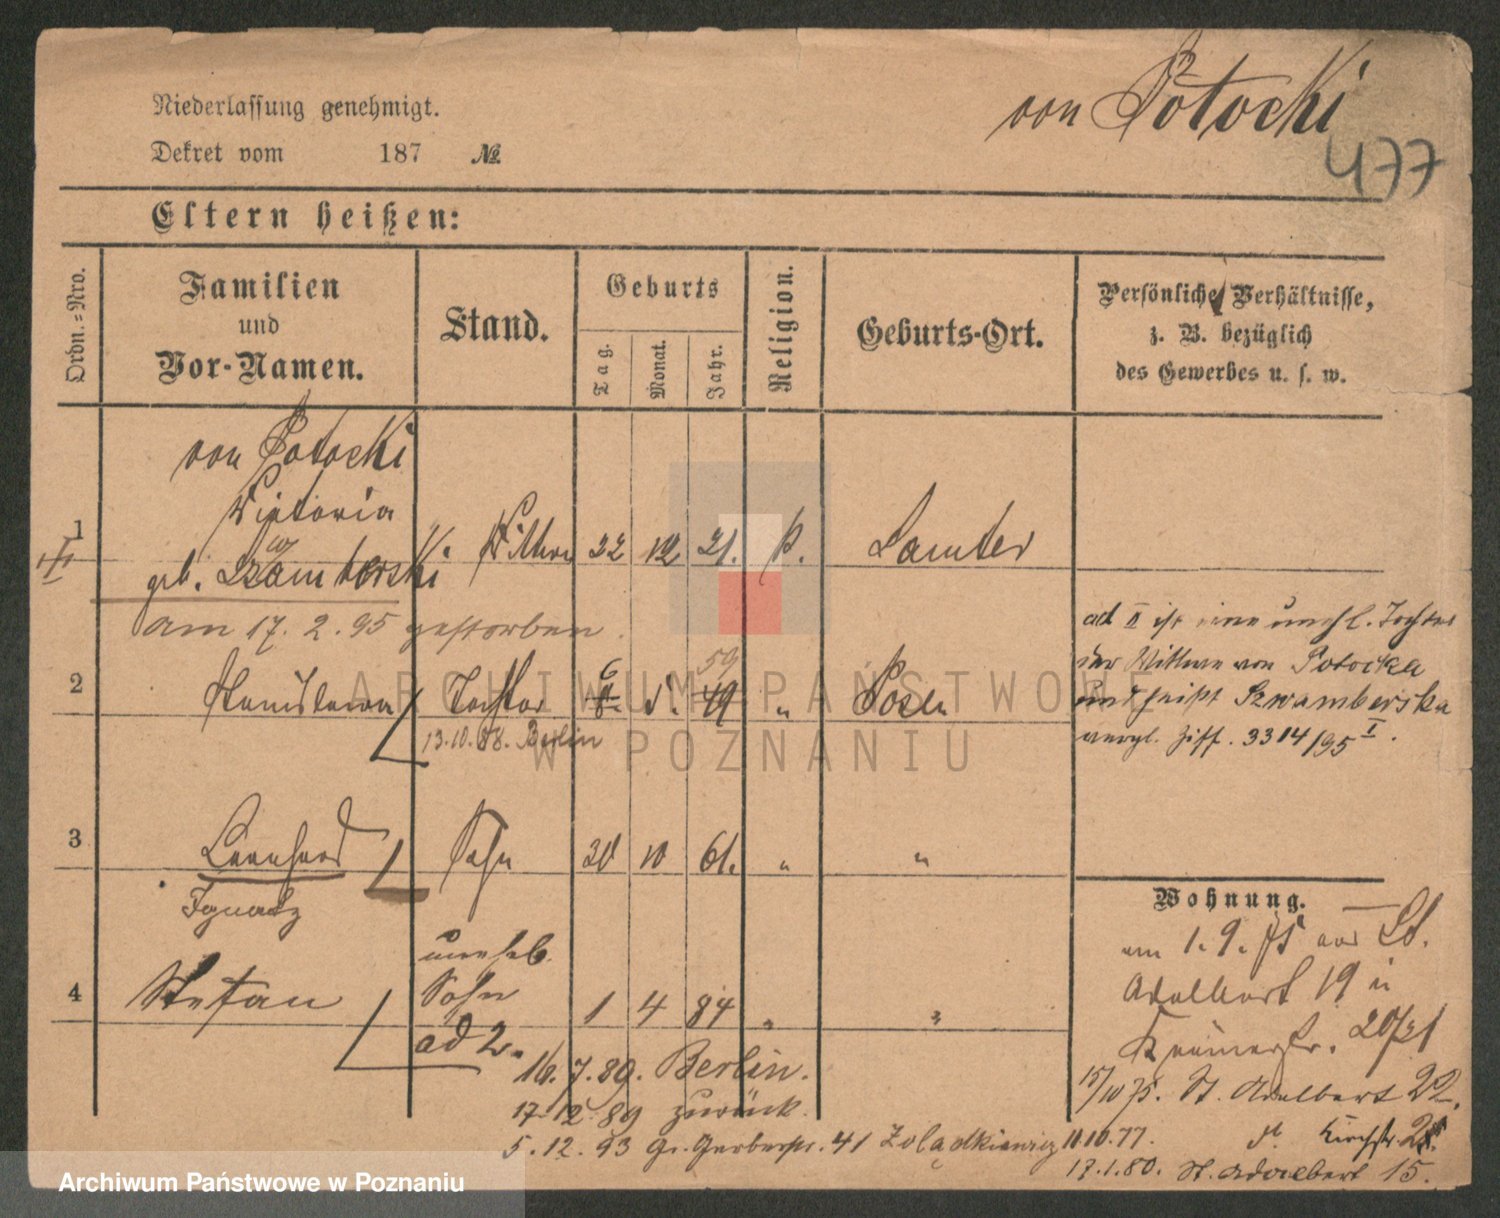 Niederlassung genehmigt.
Dekret vom 187 №
von Potocki
477
Eltern heißen:
Ordn.=Nro.
Familien
und
Vor-Namen.
Stand.
Geburts
Tag.
Monat.
Jahr.
Religion.
Geburts-Ort.
Persönliche Verhältnisse,
z. B. bezüglich
des Gewerbes u. s. w.
von Potocki
Victoria
1 Wittwe 22 12 21. k. Samter
geb. Szamberski
w
am 17. 2. 95 gestorben.
ad II ist eine unehl. Tochter
der Wittwe von Potocka
und heißt Szwamberska
vergl. Ziff. 3314/95 I.
6 59
2 Stanislawa Tochter 5. 49 " Posen
13.10.88. Berlin
3 Leonhard Sohn 30 10 61. " "
Ignatz
Wohnung.
am 1. 9. 75 von St.
Adalbert 19 in
Krämerstr. 20/21
15/10 75. St. Adalbert 22.
11.10.77. Kirchstr.
17.1.80. St. Adalbert 15.
unehl.
4 Stefan Sohn 1 4 84 " "
ad 2.
16.7.89. Berlin.
17.12.89 zurück.
5.12.93 Gr. Gerberstr. 41 Zolądkiewicz
ARCHIWUM PAŃSTWOWE
W POZNANIU
Archiwum Państwowe w Poznaniu